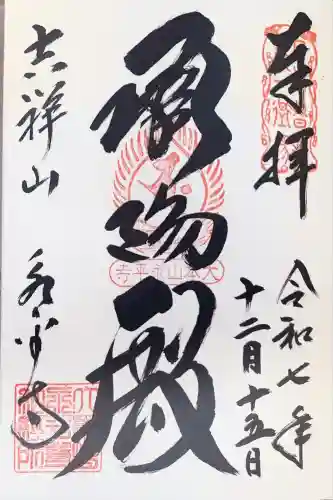 奉拝
令和七年
十二月十五日
承陽殿
大本山永平寺
吉祥山
永平寺